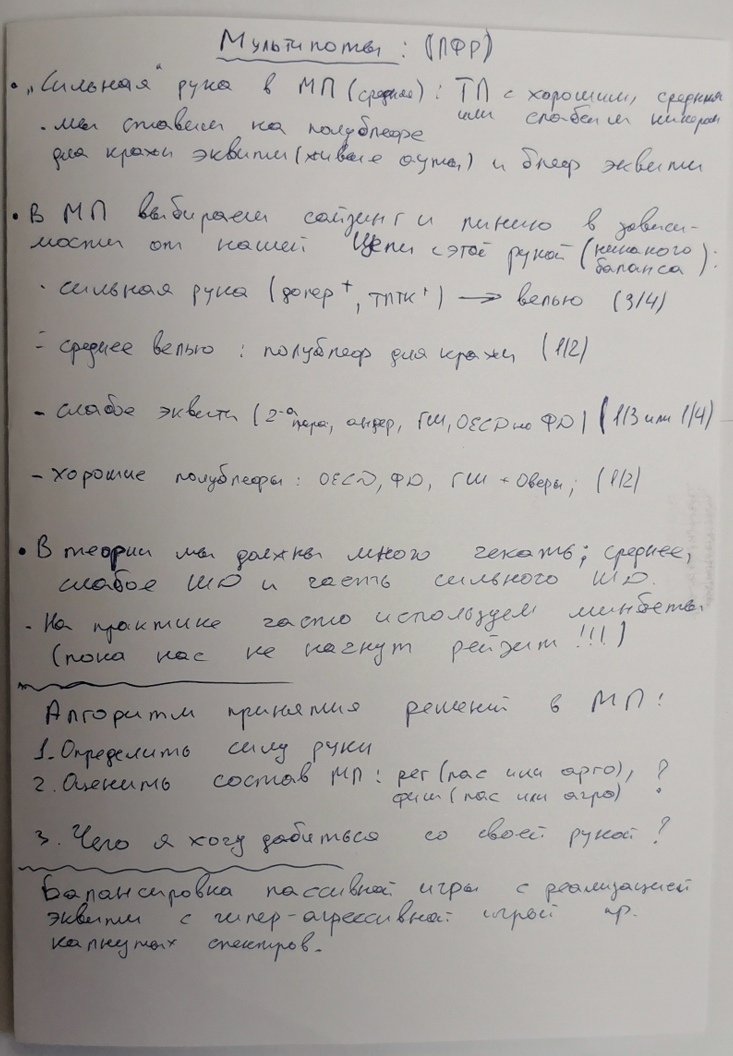 Мультипоты: (ПФР)
• „Сильная“ рука в МП (среднее): ТП с хорошим, средним
или слабым кикером
- мы ставим на полублефе
для кражи эквити (живые ауты) и блеф эквити
• В МП выбираем сайзинг и линию в зависи-
мости от нашей цели с этой рукой (никакого
баланса):
- сильная рука (допер+, ТПТК+) → велью (3/4)
- среднее велью: полублеф для кражи (1/2)
- слабое эквити (2-а пара, андер, ГШ, OESD на ФД) (1/3 или 1/4)
- хорошие полублефы: OESD, ФД, ГШ + Оверы; (1/2)
• В теории мы должны много чекать; среднее,
слабое ШД и часть сильного ШД.
- На практике часто используем минбеты
(пока нас не начнут рейзить!!!)
Алгоритм принятия решений в МП:
1. Определить силу руки
2. Оценить состав МП: рег (пас или агро), ?
фиш (пас или агро)
3. Чего я хочу добиться со своей рукой?
Балансировка пассивной игры с реализацией
эквити с гипер-агрессивной игрой пр.
капнутых спектров.